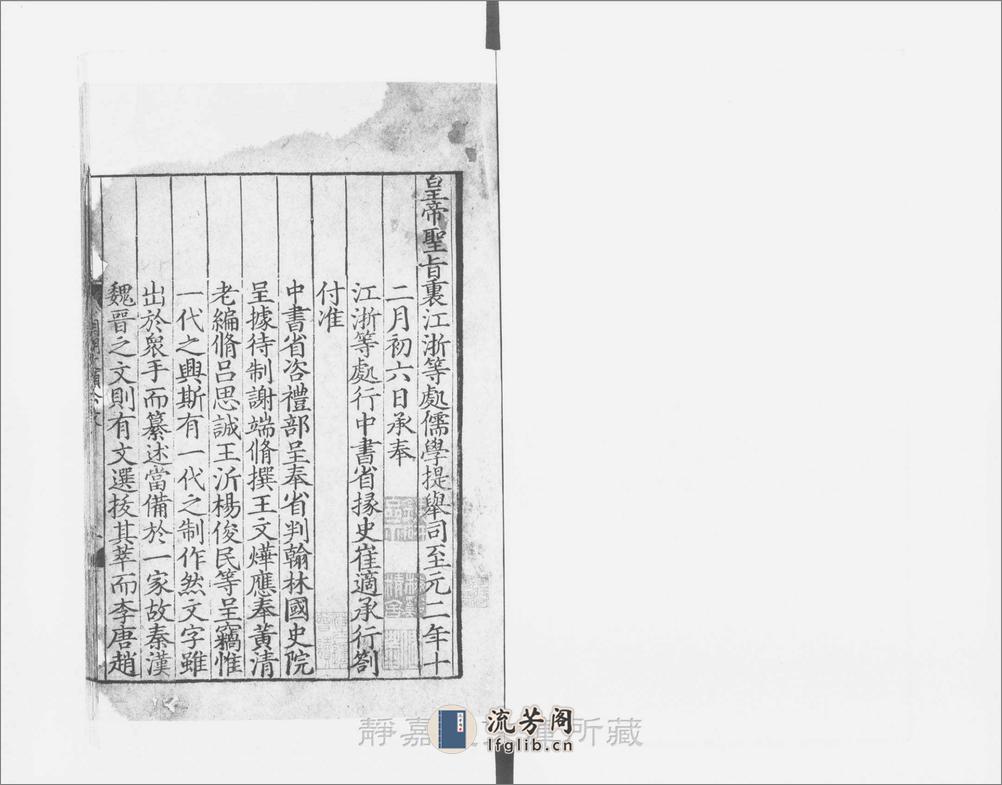 皇帝聖旨裏江浙等處儒學提舉司至元二年十
二月初六日承奉
江浙等處行中書省掾史崔適承行劄
付准
中書省咨禮部呈奉省判翰林國史院
呈據待制謝端脩撰王文煒應奉黃清
老編脩呂思誠王沂楊俊民等呈竊惟
一代之興斯有一代之制作然文字雖
出於衆手而纂述當備於一家故秦漢
魏晉之文則有文選拔其萃而李唐趙
靜嘉 所藏
流芳阁
lfglib.cn